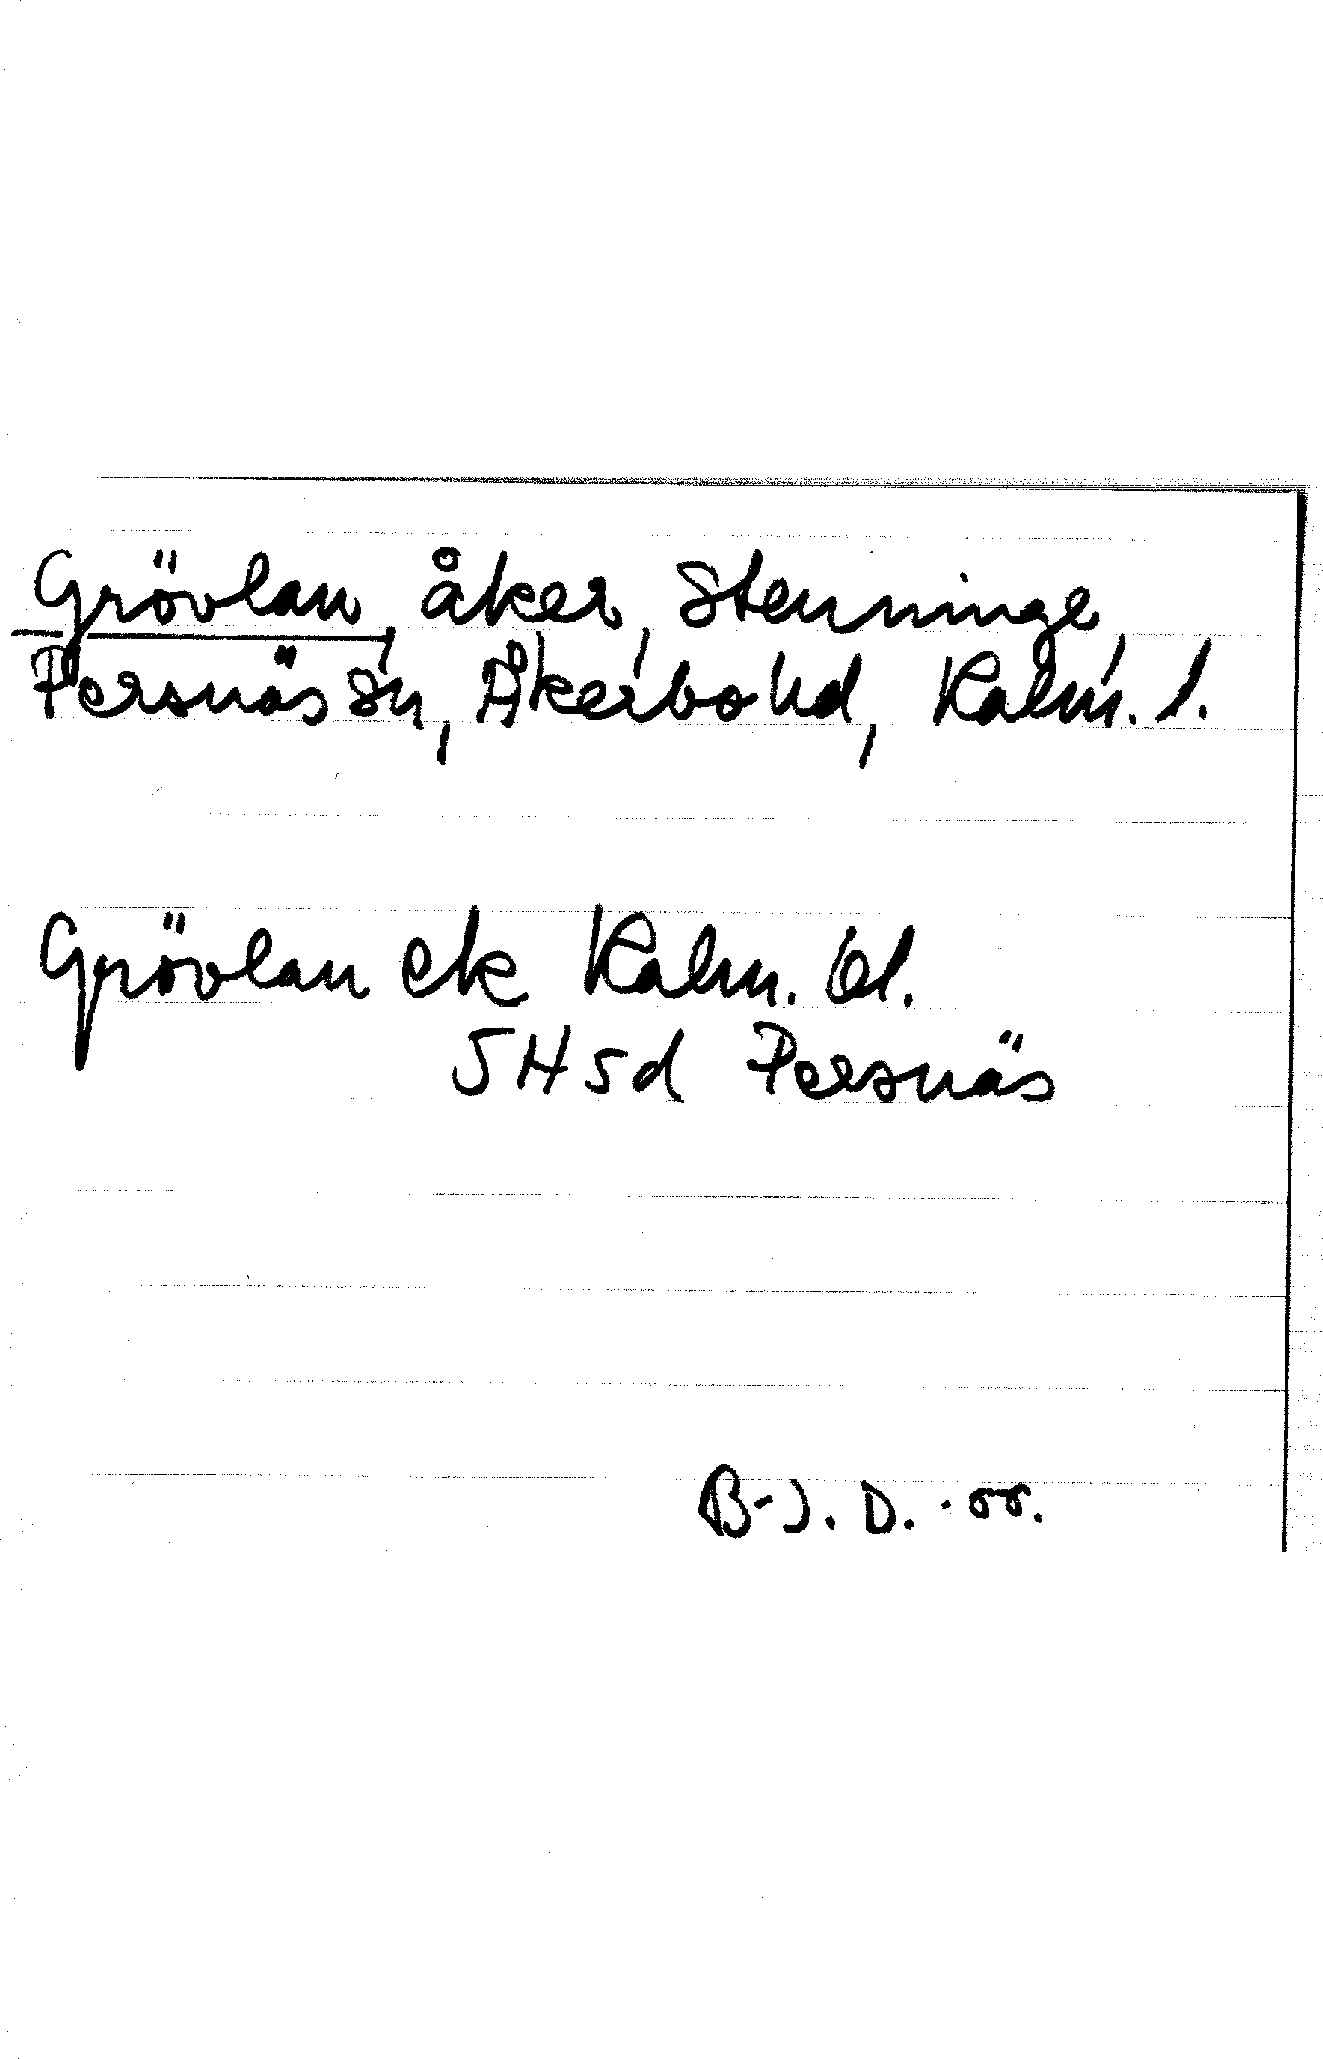 Grövlan, åker, Stenninge,
Persnäs sn, Åkerbo hd, Kalm. l.
Grövlan ek Kalm. öl.
5H5d Persnäs
B-J. D. -00.